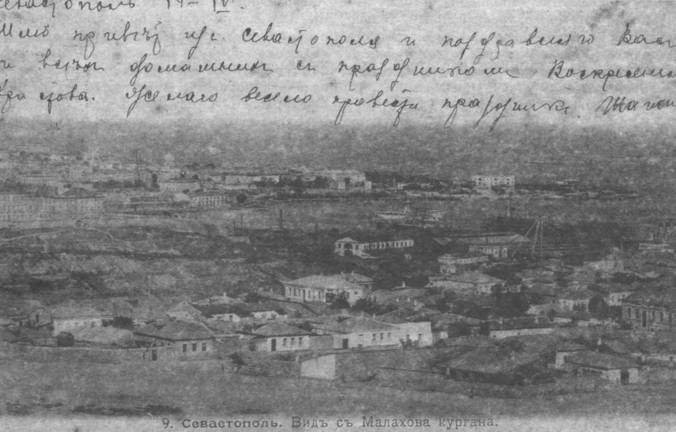 Севастополь 14 IV.
Шлю привѣт изъ Севастополя и поздравляю Вас
и всѣхъ домашнихъ съ праздникомъ Воскресенія
Христова. Желаю весело провести праздникъ.
9. Севастополь. Видъ съ Малахова кургана.